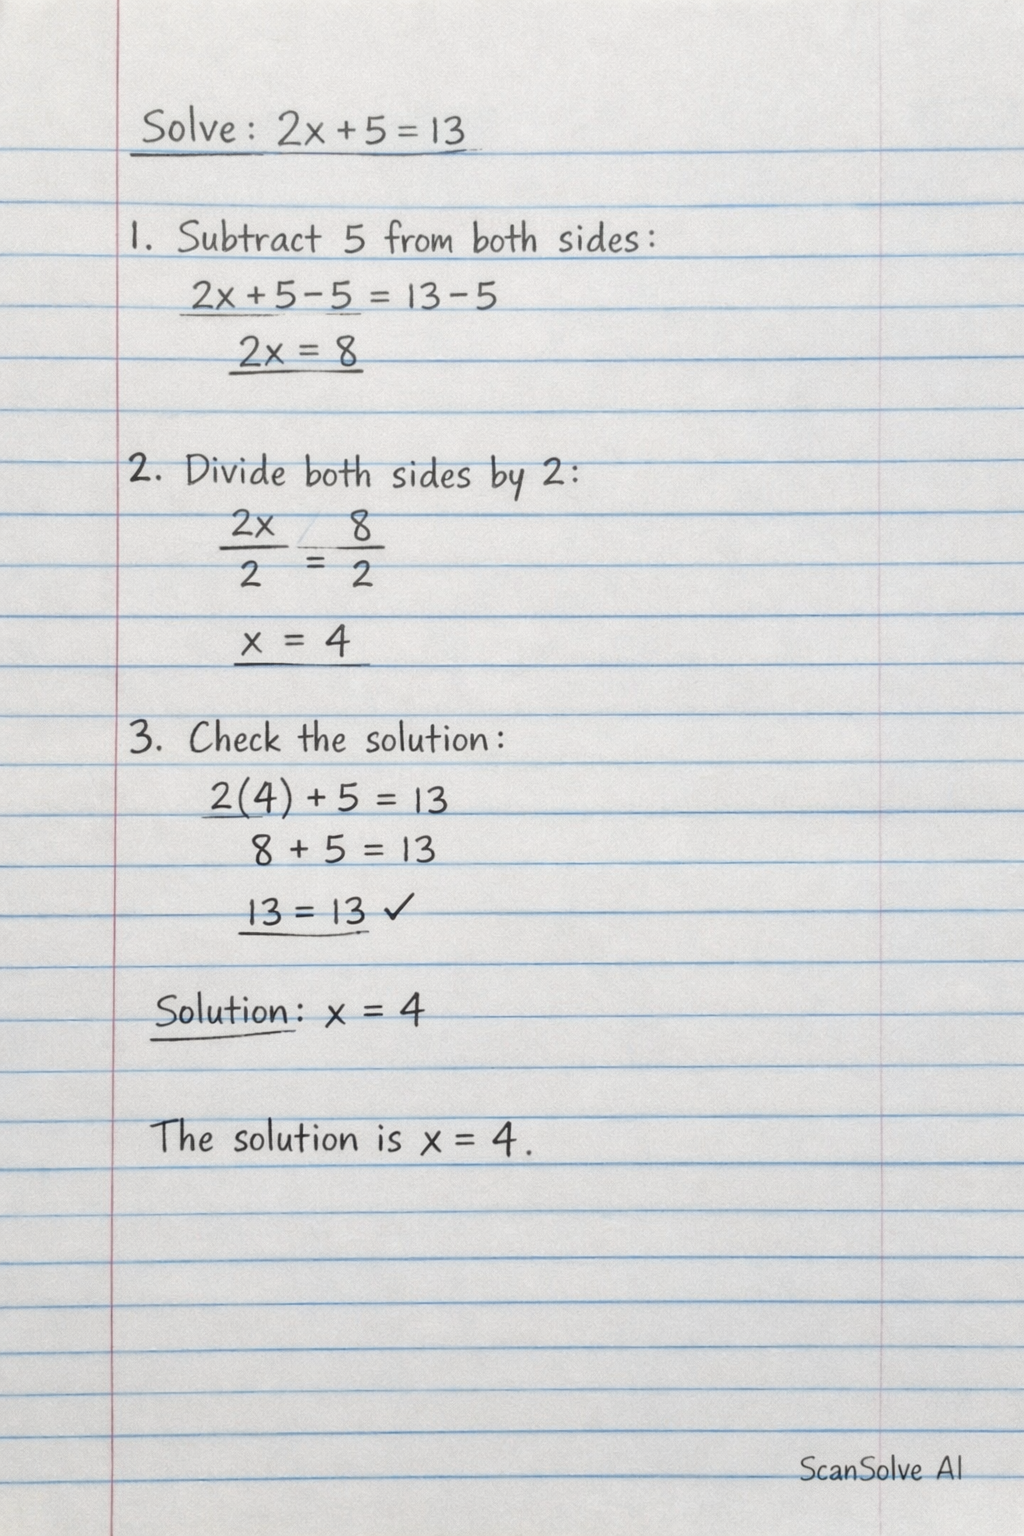 Solve: 2x + 5 = 13
1. Subtract 5 from both sides:
2x + 5 - 5 = 13 - 5
2x = 8
2. Divide both sides by 2:
2x/2 = 8/2
x = 4
3. Check the solution:
2(4) + 5 = 13
8 + 5 = 13
13 = 13 ✓
Solution: x = 4
The solution is x = 4.
ScanSolve AI